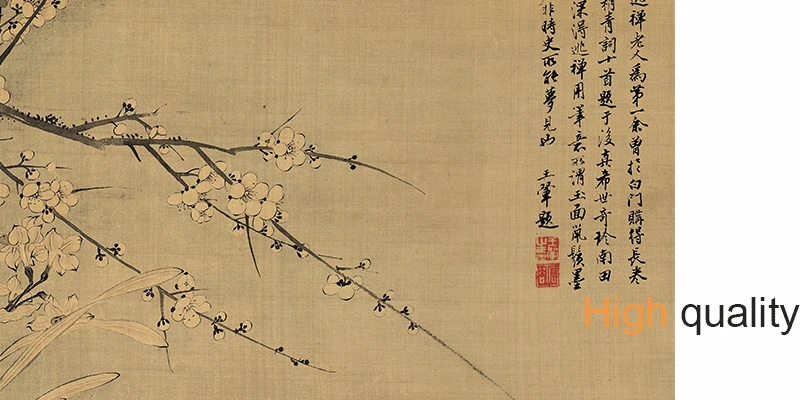 逃禪老人為第一余曾於白門購得長卷
梢青詞十首題于後真希世奇珍南田
深得逃禪用筆意所謂玉面鼠鬚墨
非時史所能夢見也 王翬題
High quality